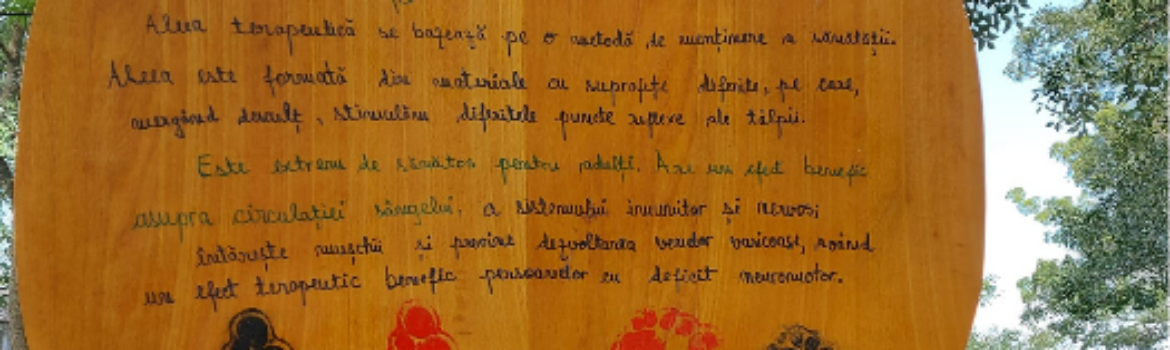 Aleea terapeutică se bazează pe o metodă de menținere a sănătății.
Aleea este formată din materiale cu suprafețe diferite, pe care,
mergând desculț, stimulăm diferitele puncte reflexe ale tălpii.
Este extrem de sănătos pentru adulți. Are un efect benefic
asupra circulației sângelui, a sistemului imunitar și nervos;
întărește mușchii și previne dezvoltarea venelor varicoase, având
un efect terapeutic benefic persoanelor cu deficit neuromotor.